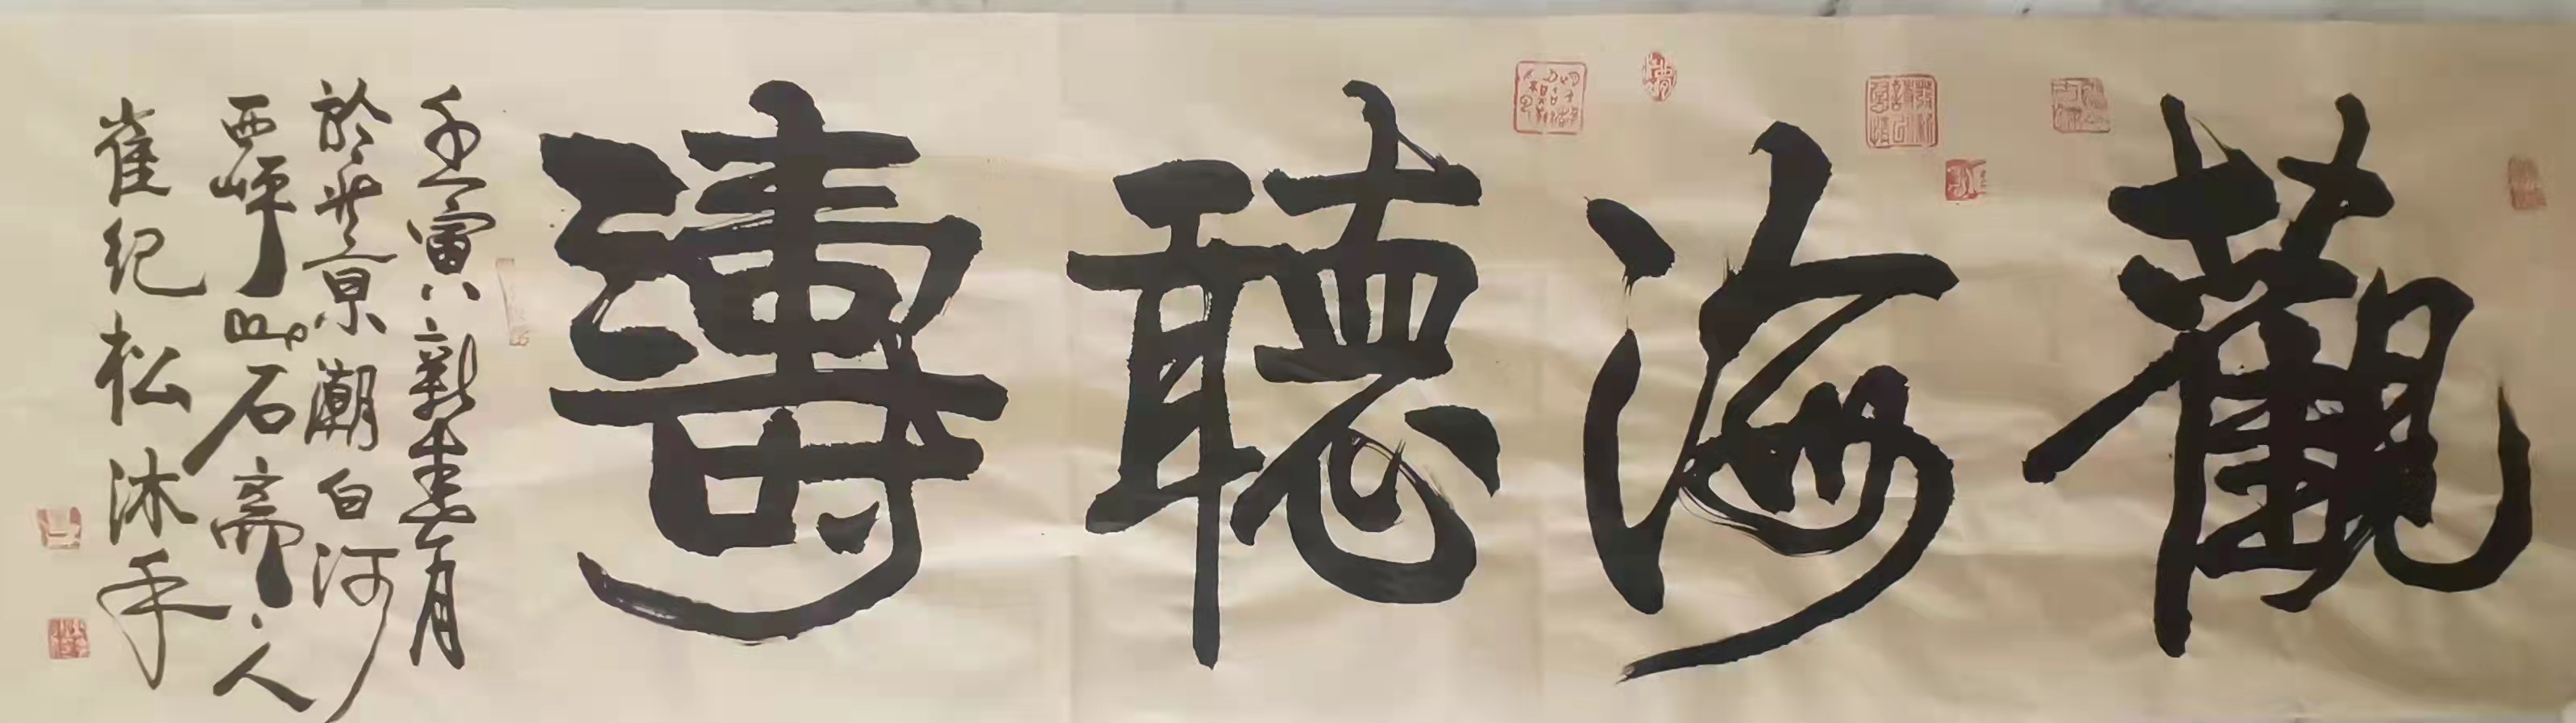 觀海聽濤
壬寅八新春月
於北京潮白河
西岸石齋人
崔纪松沐手